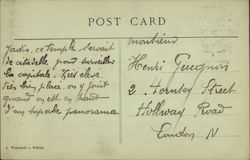 POST CARD
Jadis, ce temple servait
de citadelle pour surveiller
la capitale. Très élevé,
très bon place. on y jouit
quand on est en haut
d'un superbe panorama.
Monsieur
Henri Gueugnon
2. Fornsey Street
Holloway Road
London N